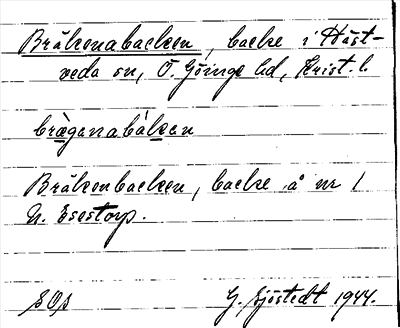 Bråkenabacken, backe i Häst-
veda sn, Ö. Göinge hd, Krist. l.
bräganabákan
Bråkenbacken, backe å nr 1
N. Esestorp.
G. Sjöstedt 1944.